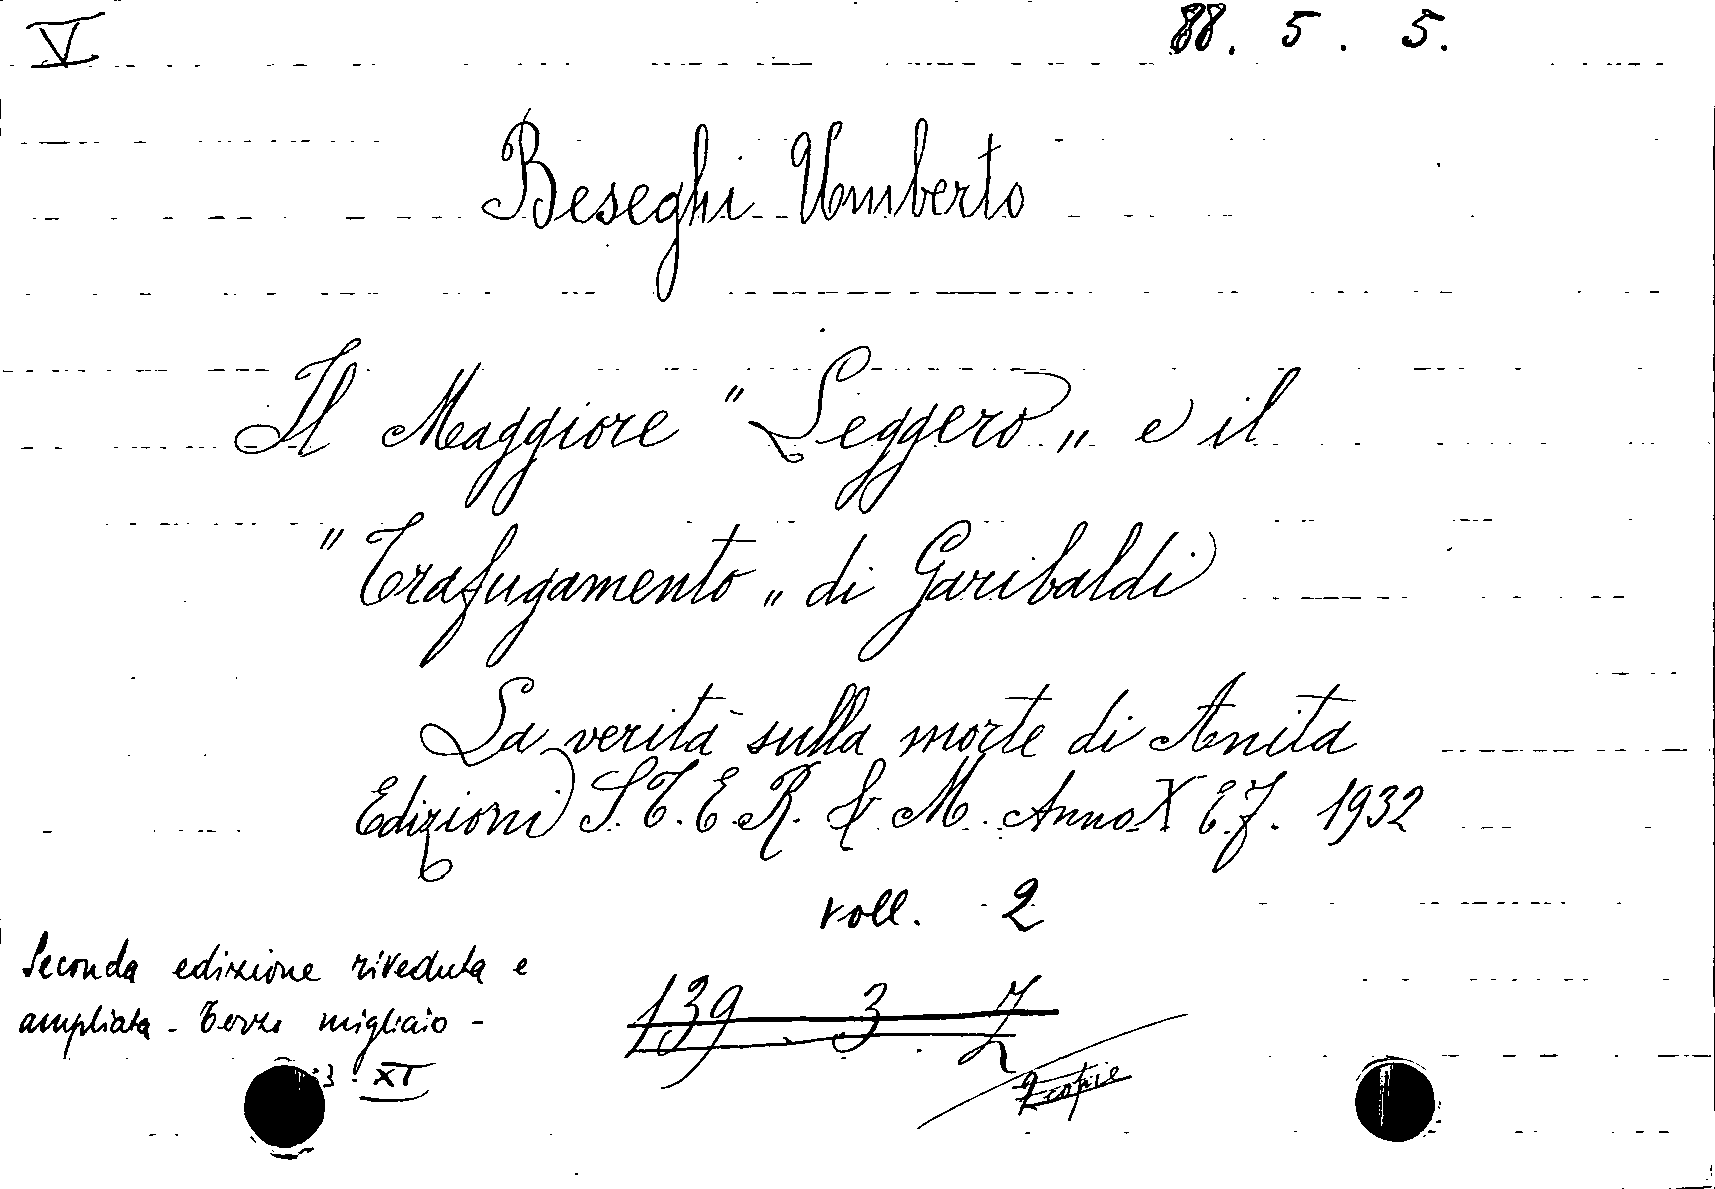 V 88. 5. 5.
Beseghi Umberto
Il Maggiore "Leggero„ e il
"Trafugamento„ di Garibaldi
La verità sulla morte di Anita
Edizioni S.T.E.R. & M. Anno X E.F. 1932
voll. 2
Seconda edizione riveduta e
ampliata - Terzo migliaio -
139. 3. 7
3 XI
2 copie